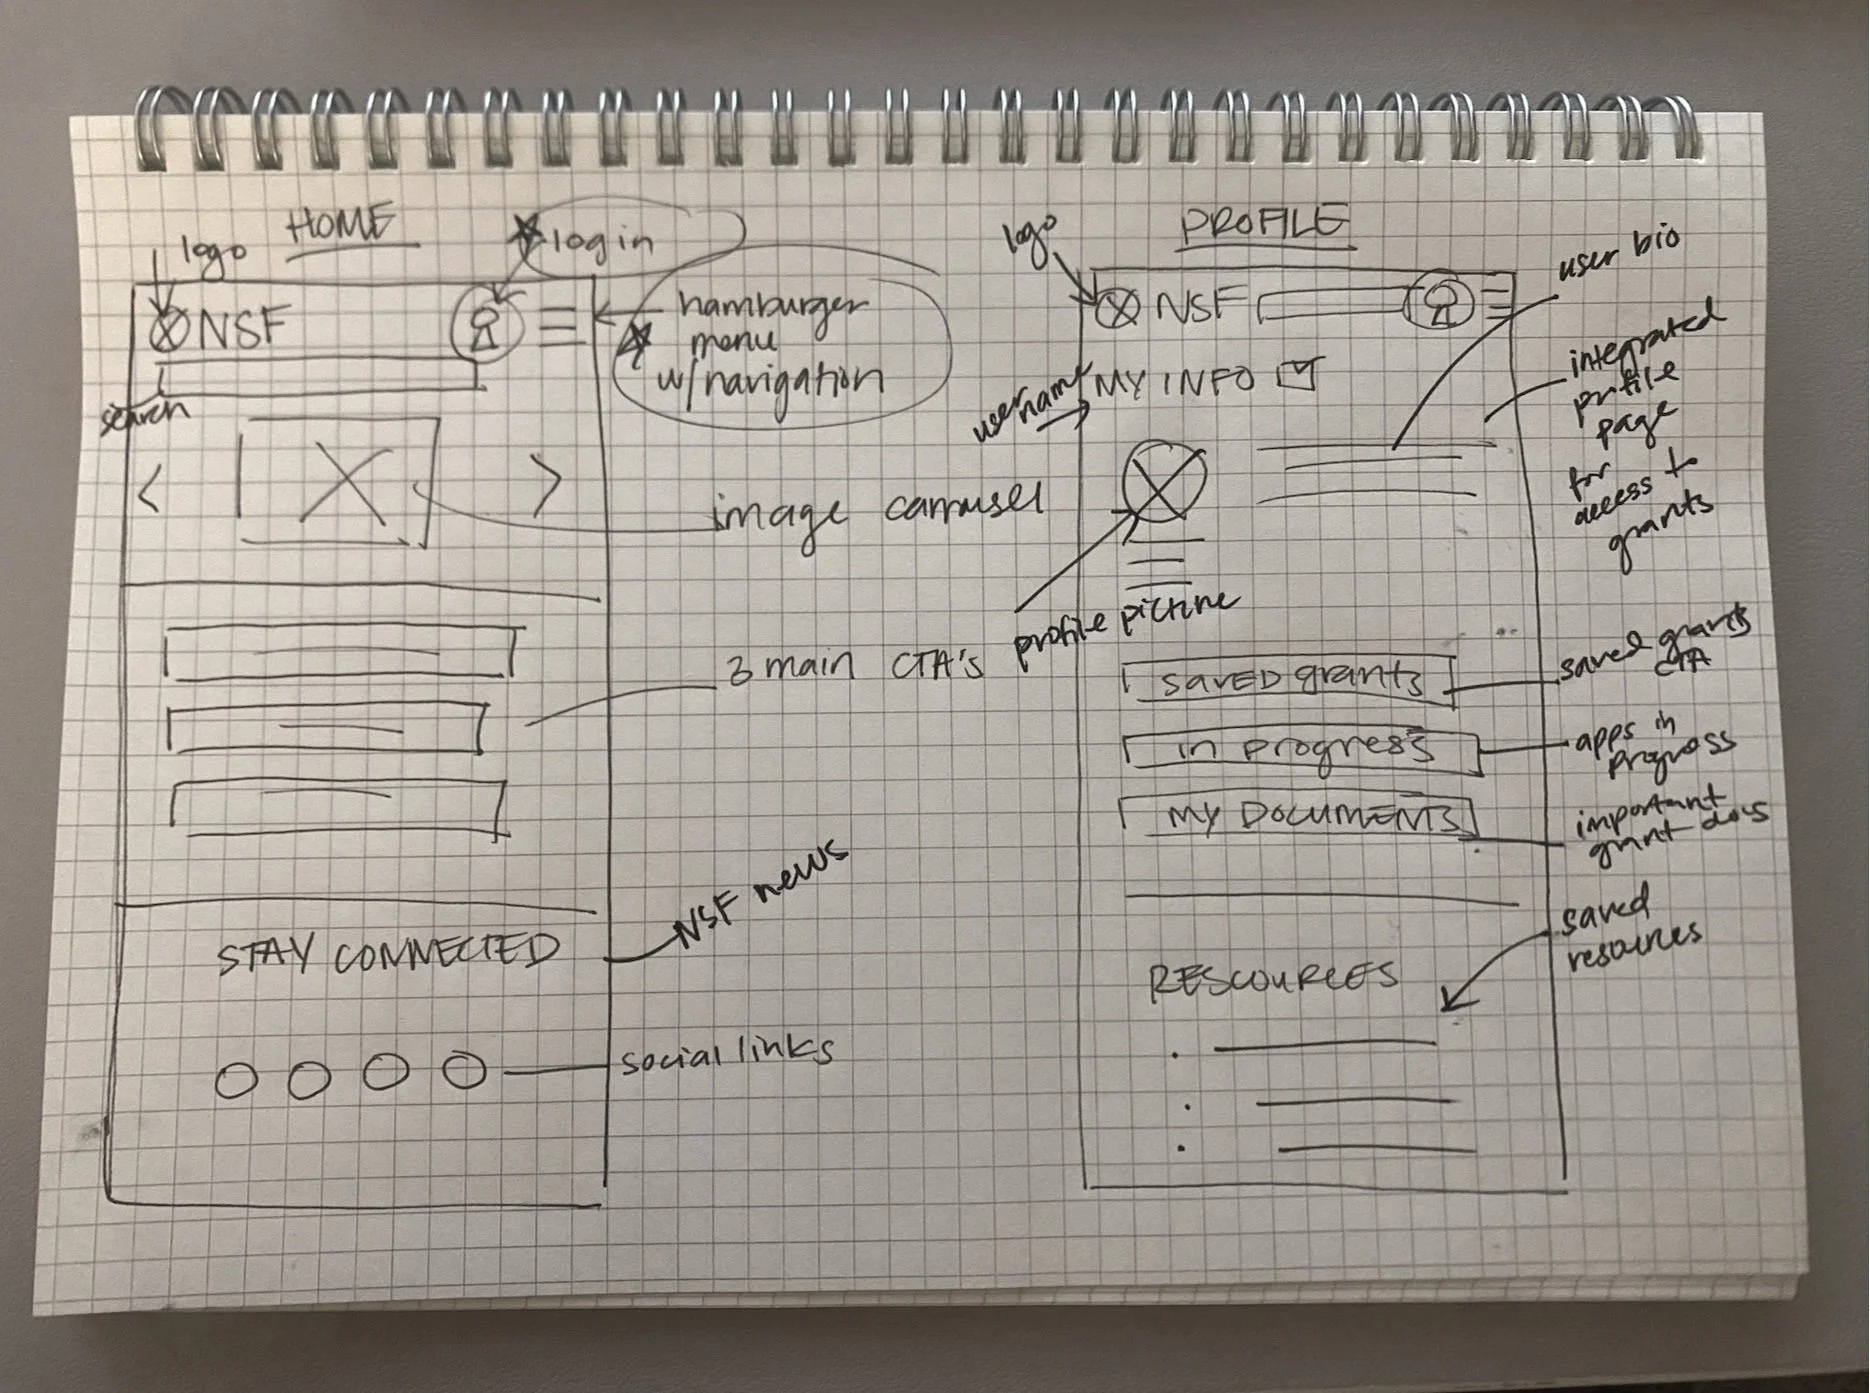 HOME
logo
login
NSF
hamburger
menu
w/navigation
search
image carrusel
3 main CTA's
NSF news
STAY CONNECTED
social links
PROFILE
logo
user bio
NSF
integrated
profile
page
for
access to
grants
user name
MY INFO
profile picture
SAVED grants
saved grants
CTA
in progress
apps in
progress
MY DOCUMENTS
important
grant docs
saved
resources
RESCOURCES